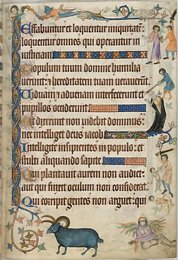 Effabuntur et loquentur iniquitatē:
loquentur omnes qui operantur in
iusticiam
Populum tuum domine humilia
uerunt: et hereditatem tuam uexauerūt.
Viduam et aduenam interfecerunt: et
pupillos occiderunt
Et dixerunt non uidebit dominus:
nec intelliget deus iacob
Intelligite insipientes in populo: et
stulti aliquando sapite
Qui plantauit aurem non audiet:
aut qui finxit oculum non considerat.
Qui corripit gentes non arguet: qui